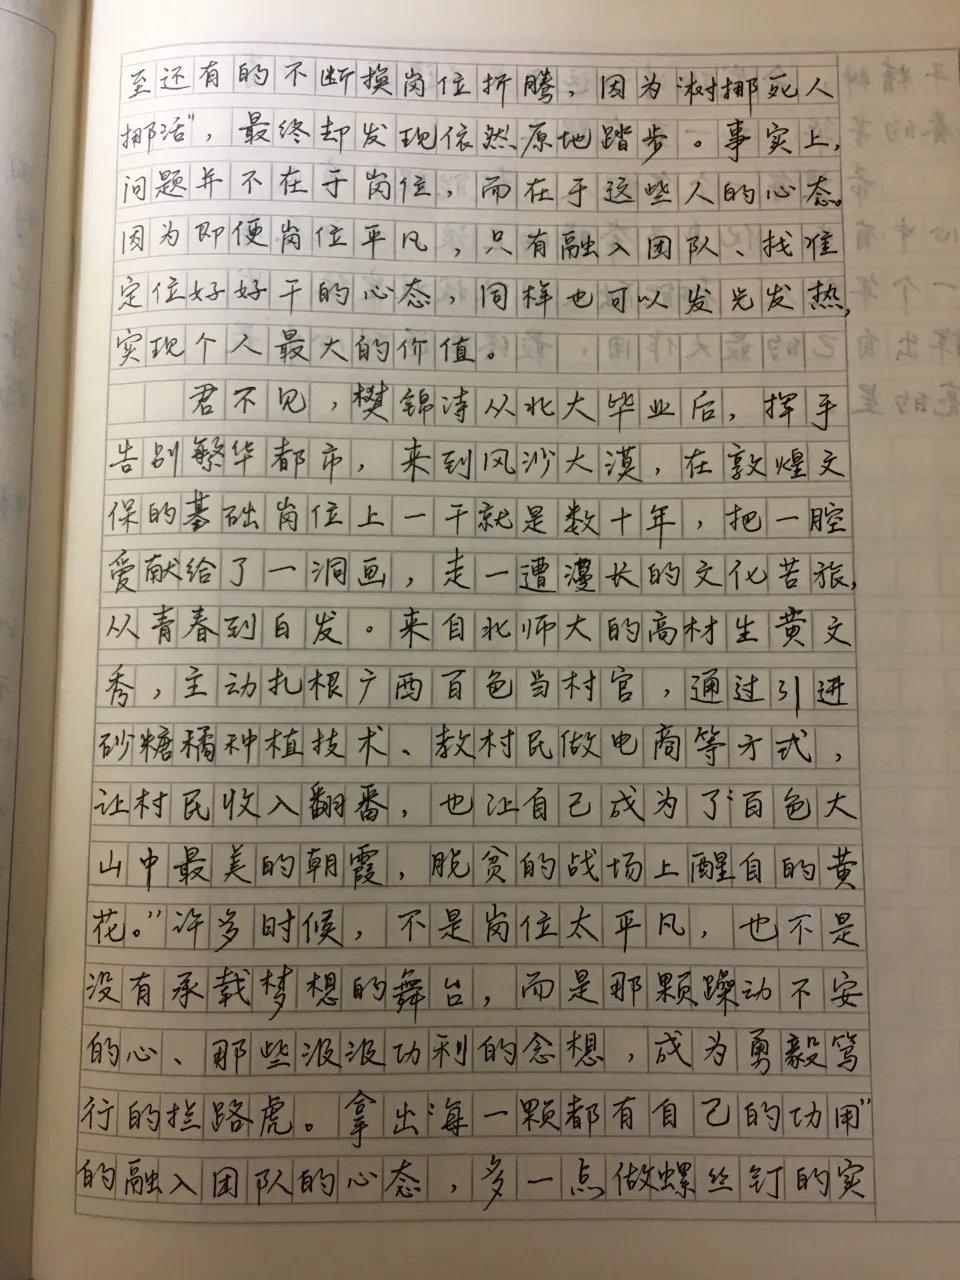 至还有的不断换岗位折腾，因为“树挪死人
挪活”，最终却发现依然原地踏步。事实上，
问题并不在于岗位，而在于这些人的心态。
因为即便岗位平凡，只有融入团队、找准
定位好好干的心态，同样也可以发光发热，
实现个人最大的价值。
君不见，樊锦诗从北大毕业后，挥手
告别繁华都市，来到风沙大漠，在敦煌文
保的基础岗位上一干就是数十年，把一腔
爱献给了一洞画，走一遭漫长的文化苦旅，
从青春到白发。来自北师大的高材生黄文
秀，主动扎根广西百色当村官，通过引进
砂糖橘种植技术、教村民做电商等方式，
让村民收入翻番，也让自己成为了“百色大
山中最美的朝霞，脱贫的战场上醒目的黄
花。”许多时候，不是岗位太平凡，也不是
没有承载梦想的舞台，而是那颗躁动不安
的心、那些汲汲功利的念想，成为勇毅笃
行的拦路虎。拿出“每一颗都有自己的功用”
的融入团队的心态，多一点做螺丝钉的实